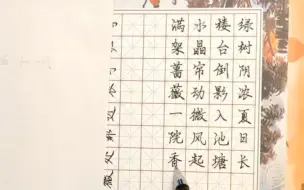 绿树阴浓夏日长
楼台倒影入池塘
水晶帘动微风起
满架蔷薇一院香